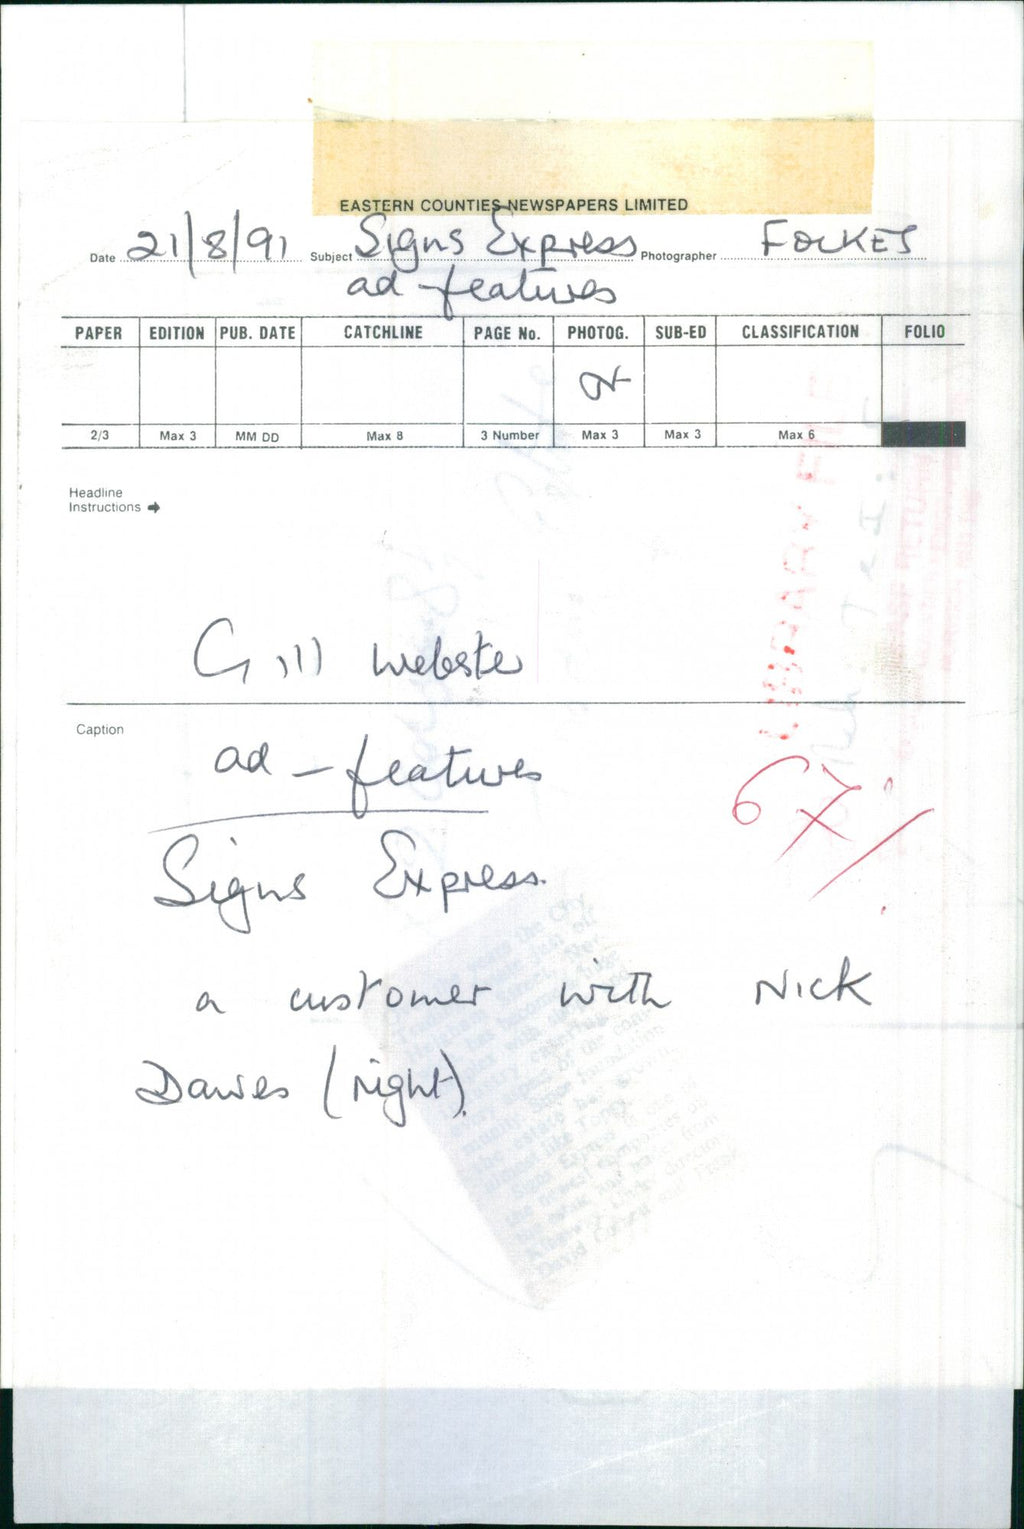 EASTERN COUNTIES NEWSPAPERS LIMITED
Date 21/8/91 Subject Signs Express Photographer FOLKES
ad features
PAPER EDITION PUB. DATE CATCHLINE PAGE No. PHOTOG. SUB-ED CLASSIFICATION FOLIO
2/3 Max 3 MM DD Max 8 3 Number Max 3 Max 3 Max 6
Headline
Instructions
Gill Webster
Caption
ad - features
67%
Signs Express.
a customer with NICK
Dawes (right).